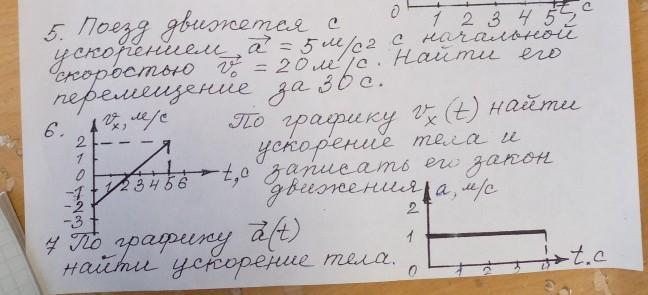 0 1 2 3 4 5 t, с
5. Поезд движется с
ускорением a = 5 м/с2 с начальной
скоростью v₀ = 20 м/с. Найти его
перемещение за 30 с.
6.
vx, м/с
2
1
0
-1
-2
-3
1 2 3 4 5 6
t, с
По графику vx (t) найти
ускорение тела и
записать его закон
движения
7 По графику a(t)
найти ускорение тела.
a, м/с
2
1
0 1 2 3
t. с